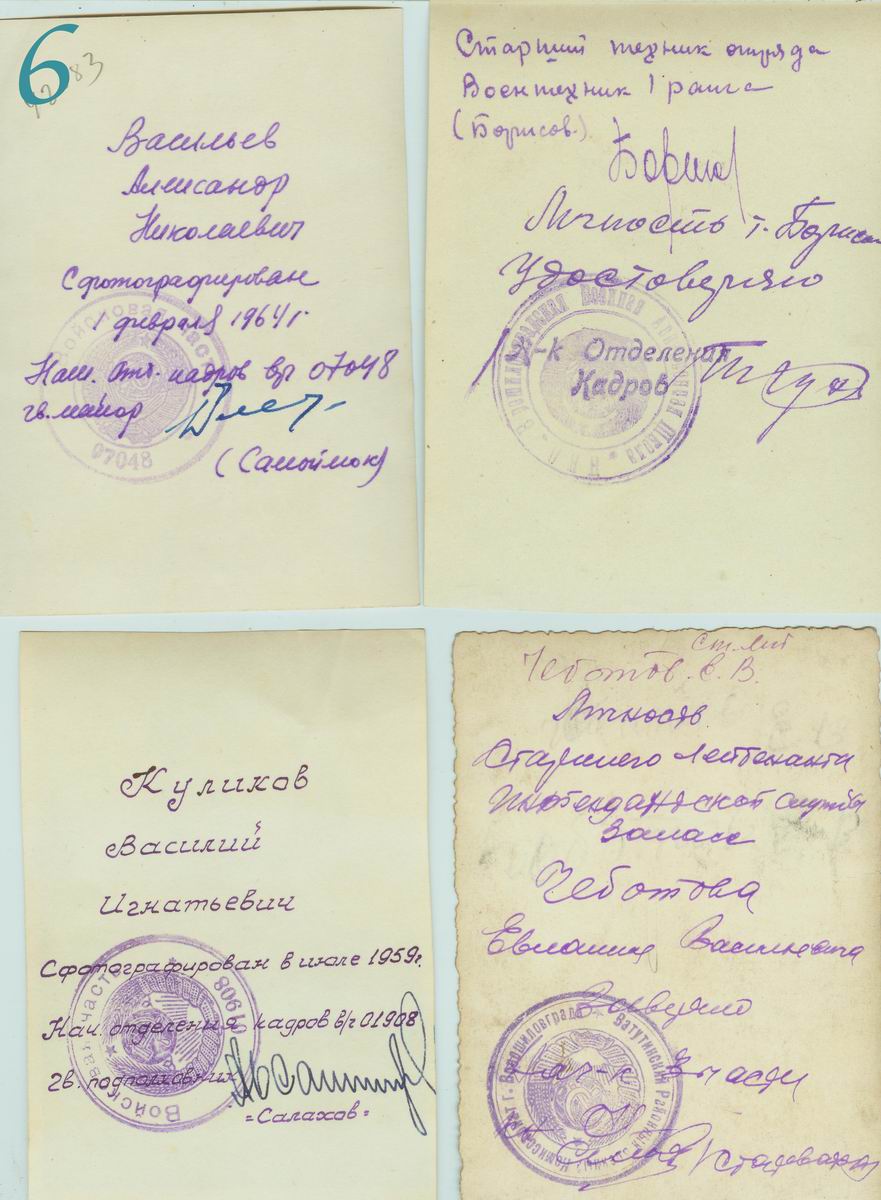 6
83
Васильев
Александр
Николаевич
Сфотографирован
1 февраля 1964 г.
Нач. отд. кадров в/ч 07048
гв. майор
(Самоймок)
Войсковая часть
07048
Старший техник отряда
Воентехник 1 ранга
(Борисов.)
Личность т. Борисова
Удостоверяю
Н-к Отделения
Кадров
Куликов
Василий
Игнатьевич
Сфотографирован в июле 1959г.
Нач. отделения кадров в/ч 01908
Гв. подполковник
=Салахов=
Войсковая часть
01908
ст. лейт
Чеботов. Е. В.
Личность
Старшего Лейтенанта
Интендантской службы
Запаса
Чеботова
Васильевича
Заверяю
части
г. Ворошиловграда Ватутинский Районный